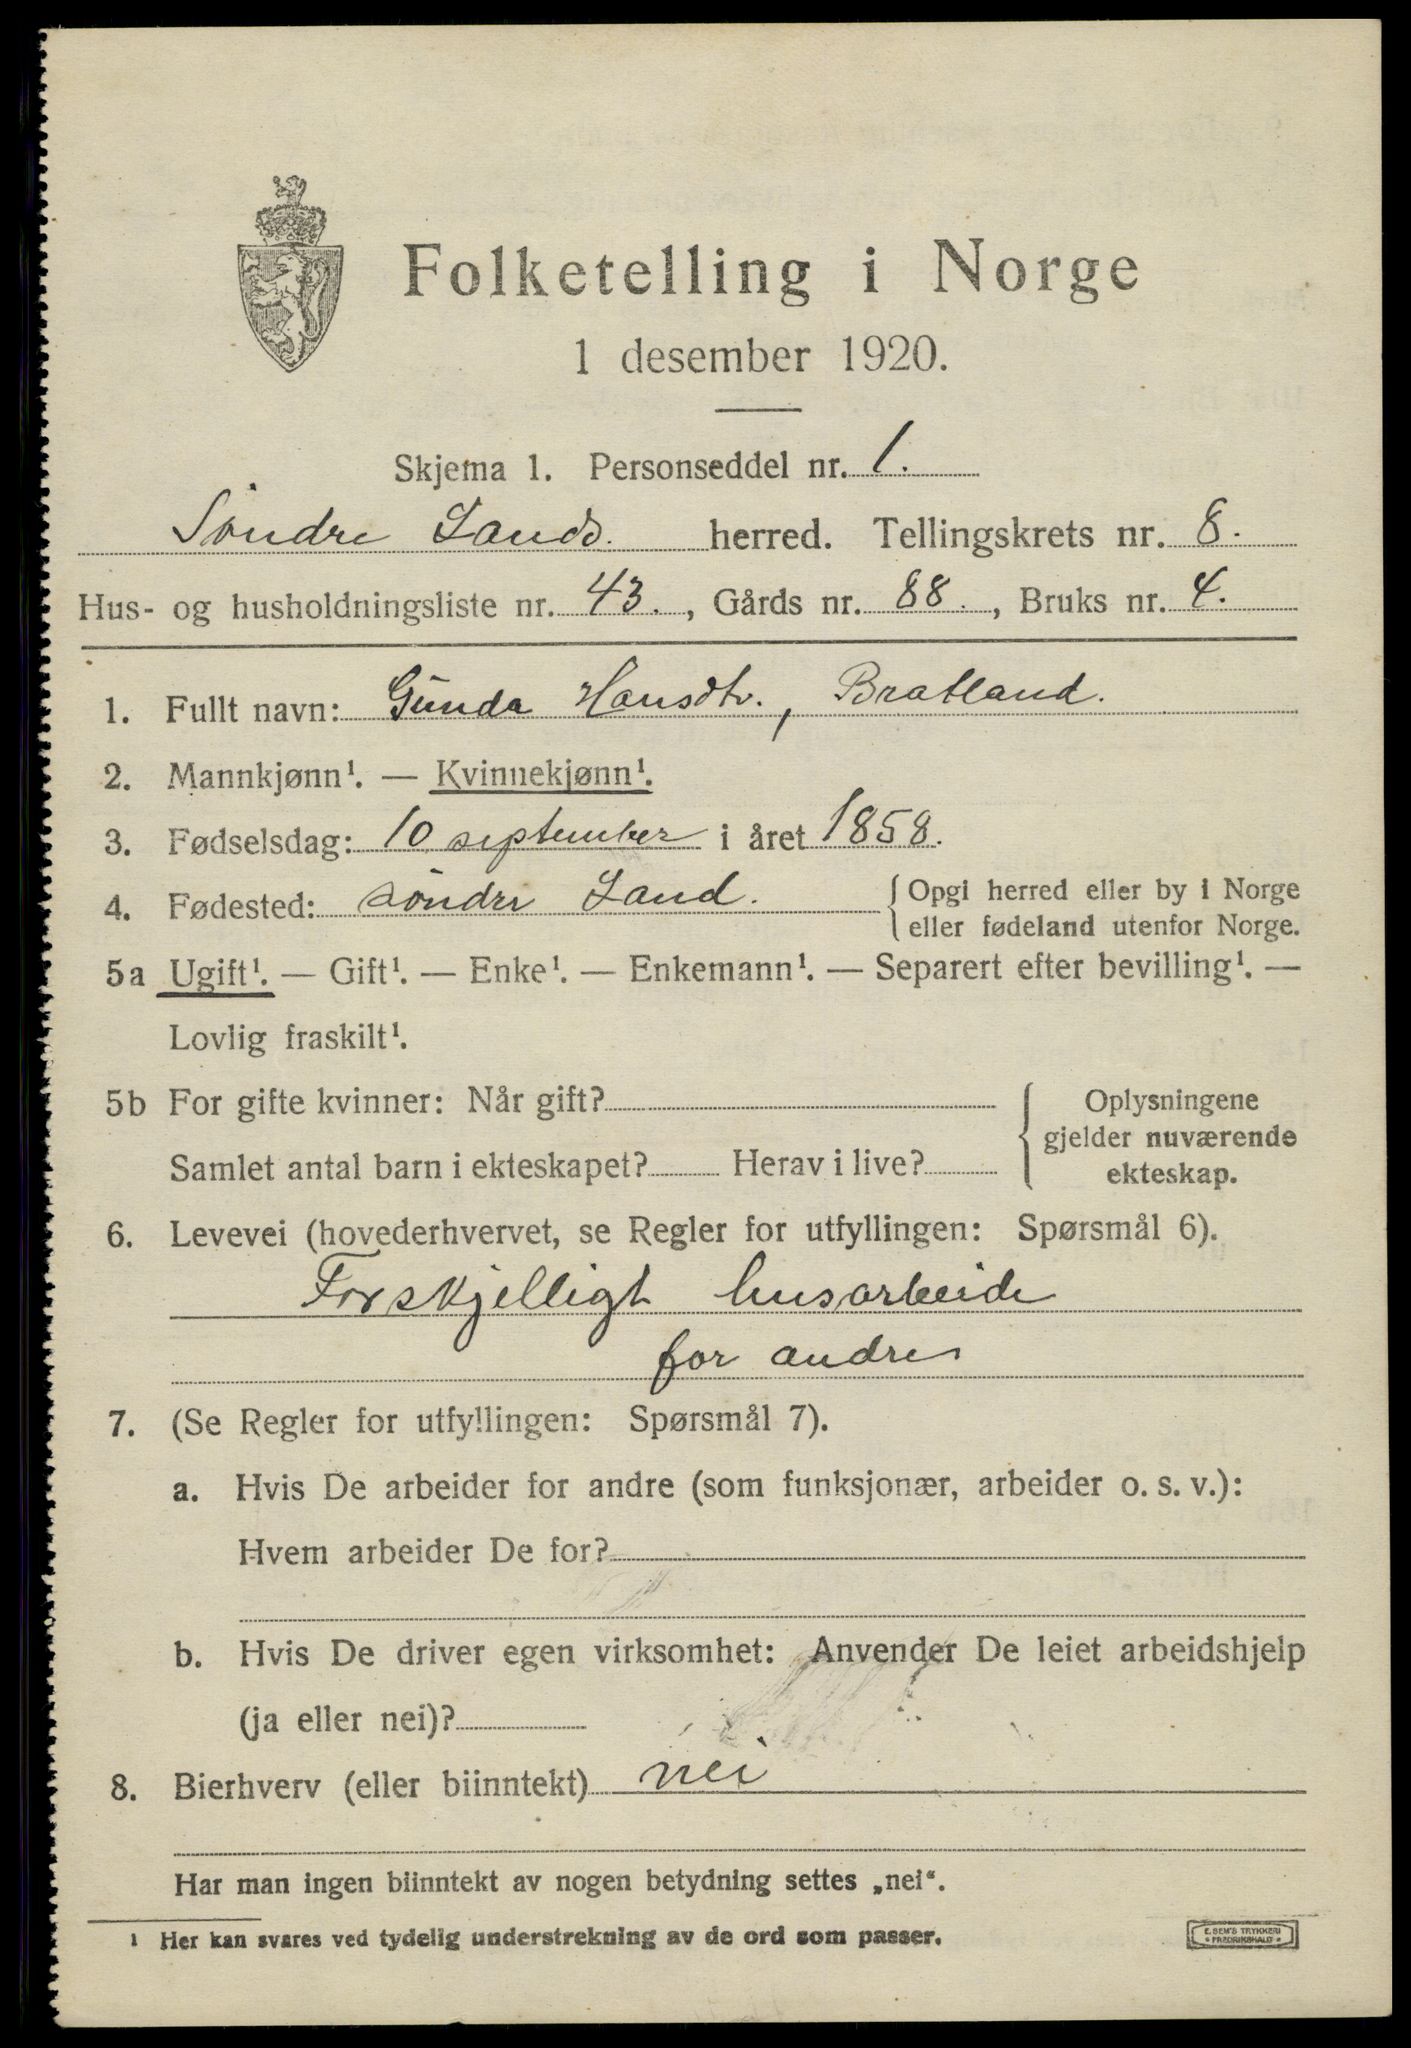 Folketelling i Norge
1 desember 1920.
Skjema 1. Personseddel nr. 1.
Søndre Lands. herred. Tellingskrets nr. 8.
Hus- og husholdningsliste nr. 43., Gårds nr. 88., Bruks nr. 4.
1. Fullt navn: Gunda Hansdtr., Bratland.
2. Mannkjønn¹. — Kvinnekjønn¹.
3. Fødselsdag: 10 september i året 1858.
4. Fødested: søndre Land. { Opgi herred eller by i Norge
eller fødeland utenfor Norge.
5a Ugift¹. — Gift¹. — Enke¹. — Enkemann¹. — Separert efter bevilling¹. —
Lovlig fraskilt¹.
5b For gifte kvinner: Når gift?
Samlet antal barn i ekteskapet? Herav i live?
{ Oplysningene
gjelder nuværende
ekteskap.
6. Levevei (hovederhvervet, se Regler for utfyllingen: Spørsmål 6).
Forskjelligt husarbeide
for andre
7. (Se Regler for utfyllingen: Spørsmål 7).
a. Hvis De arbeider for andre (som funksjonær, arbeider o. s. v.):
Hvem arbeider De for?
b. Hvis De driver egen virksomhet: Anvender De leiet arbeidshjelp
(ja eller nei)?
8. Bierhverv (eller biinntekt) nei
Har man ingen biinntekt av nogen betydning settes „nei“.
¹ Her kan svares ved tydelig understrekning av de ord som passer.
E. SEM'S TRYKKERI
FREDRIKSHALD